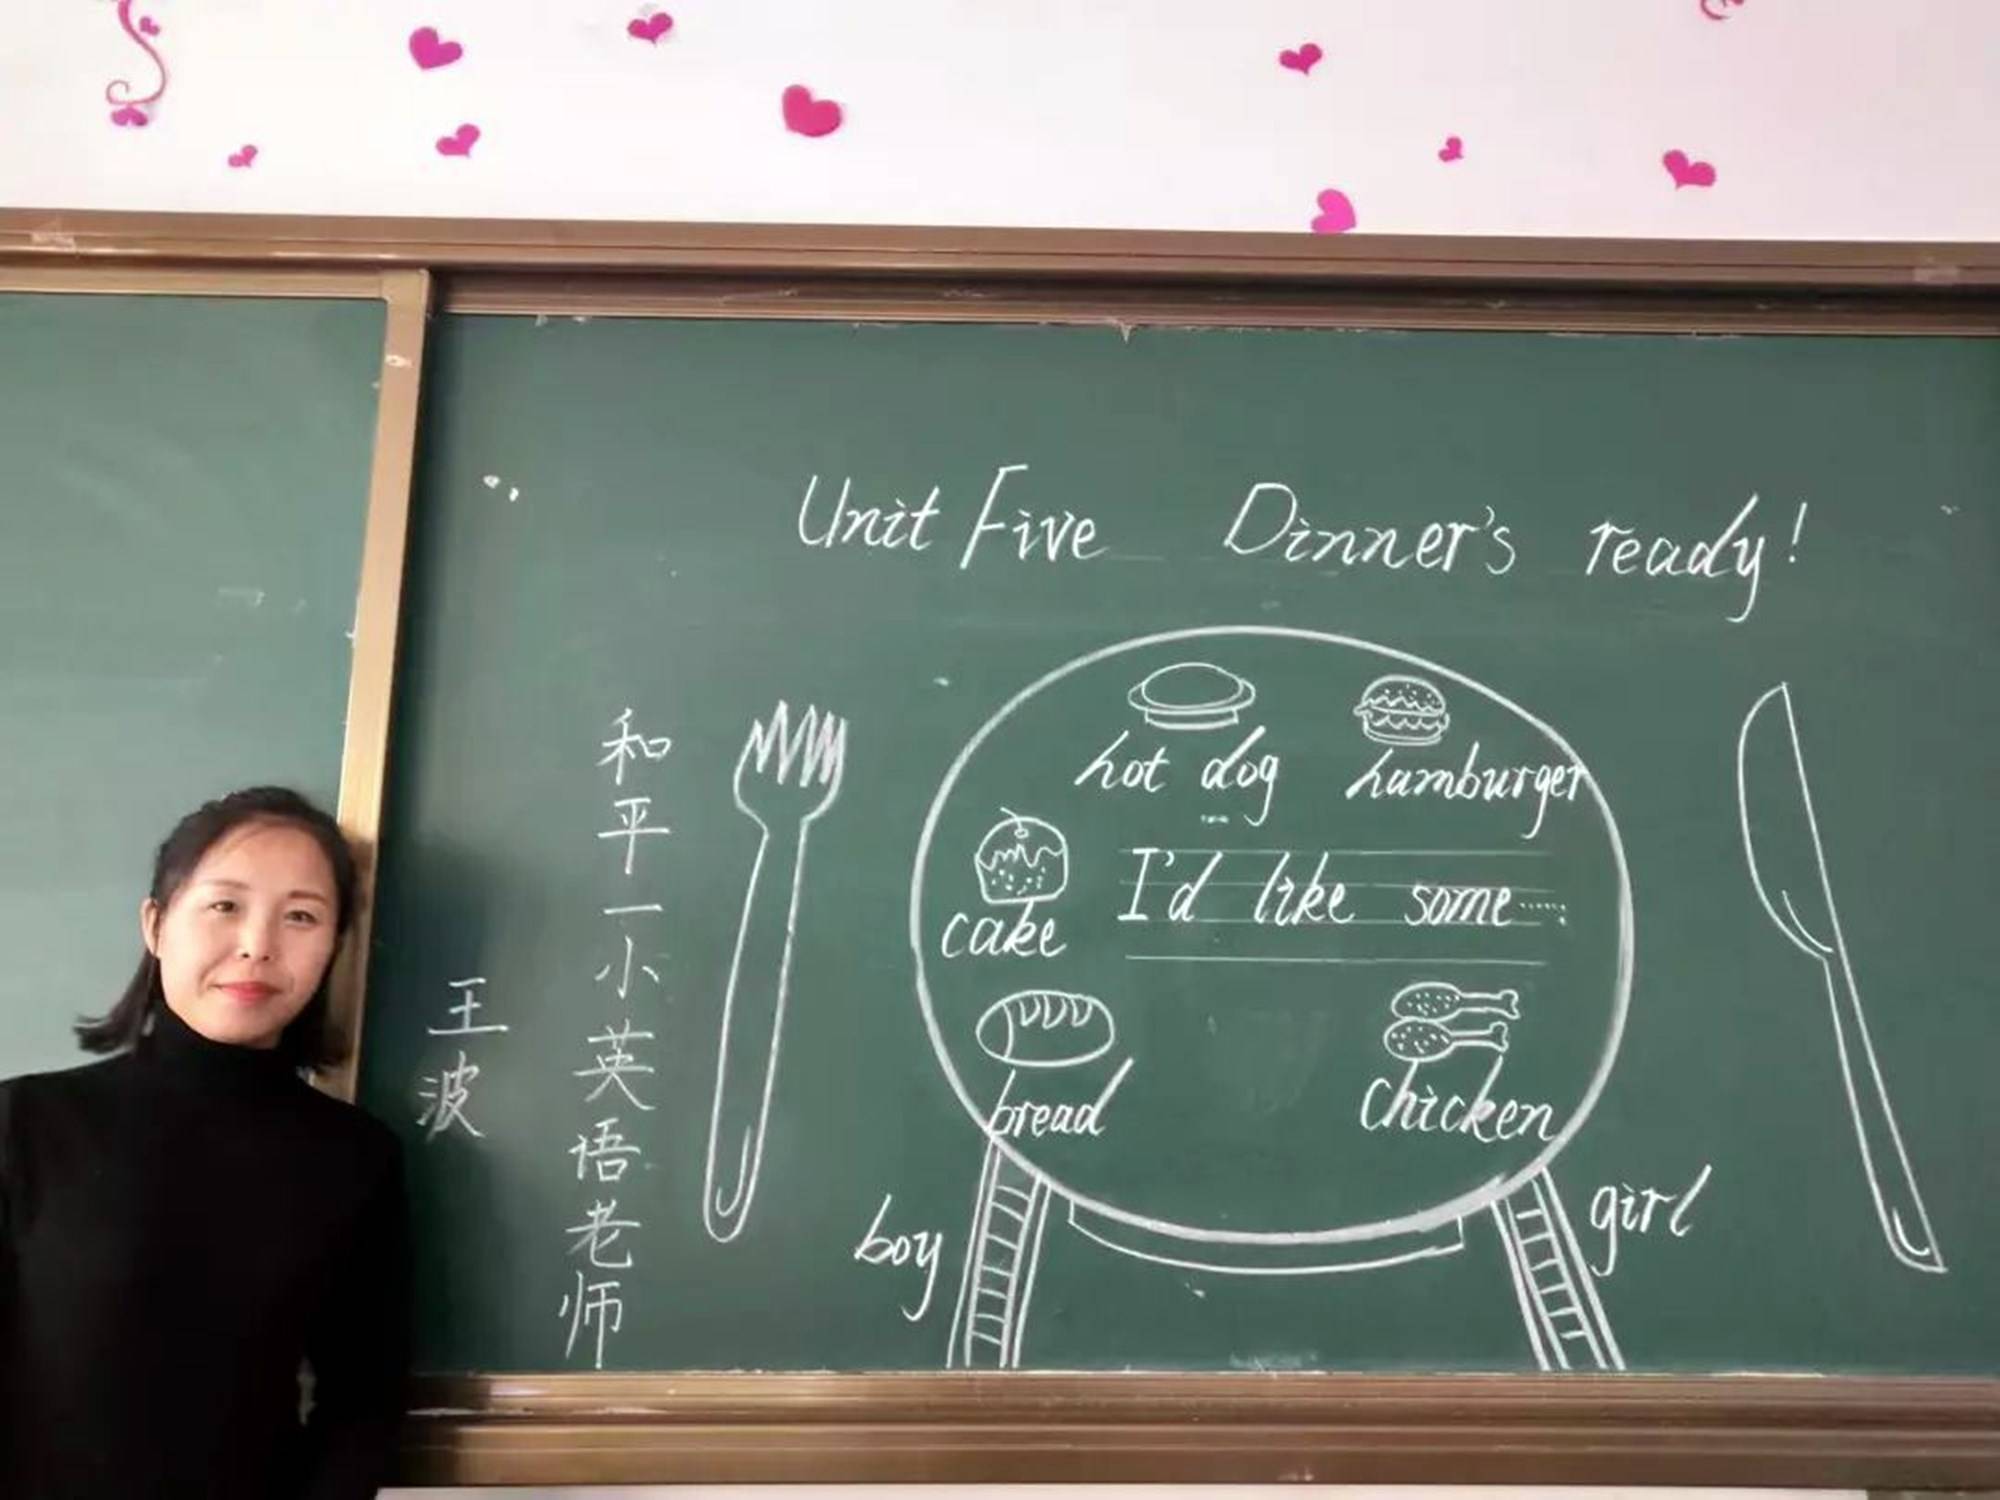 Unit Five Dinner's ready!
hot dog
hamburger
cake
I'd like some······
bread
chicken
boy
girl
和平一小英语老师
王波